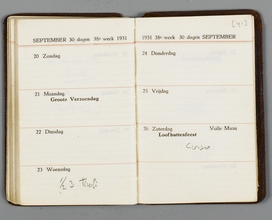 SEPTEMBER 30 dagen 38e week 1931
20 Zondag
21 Maandag
Groote Verzoendag
22 Dinsdag
23 Woensdag
1931 38e week 30 dagen SEPTEMBER
24 Donderdag
25 Vrijdag
26 Zaterdag Volle Maan
Loofhuttenfeest